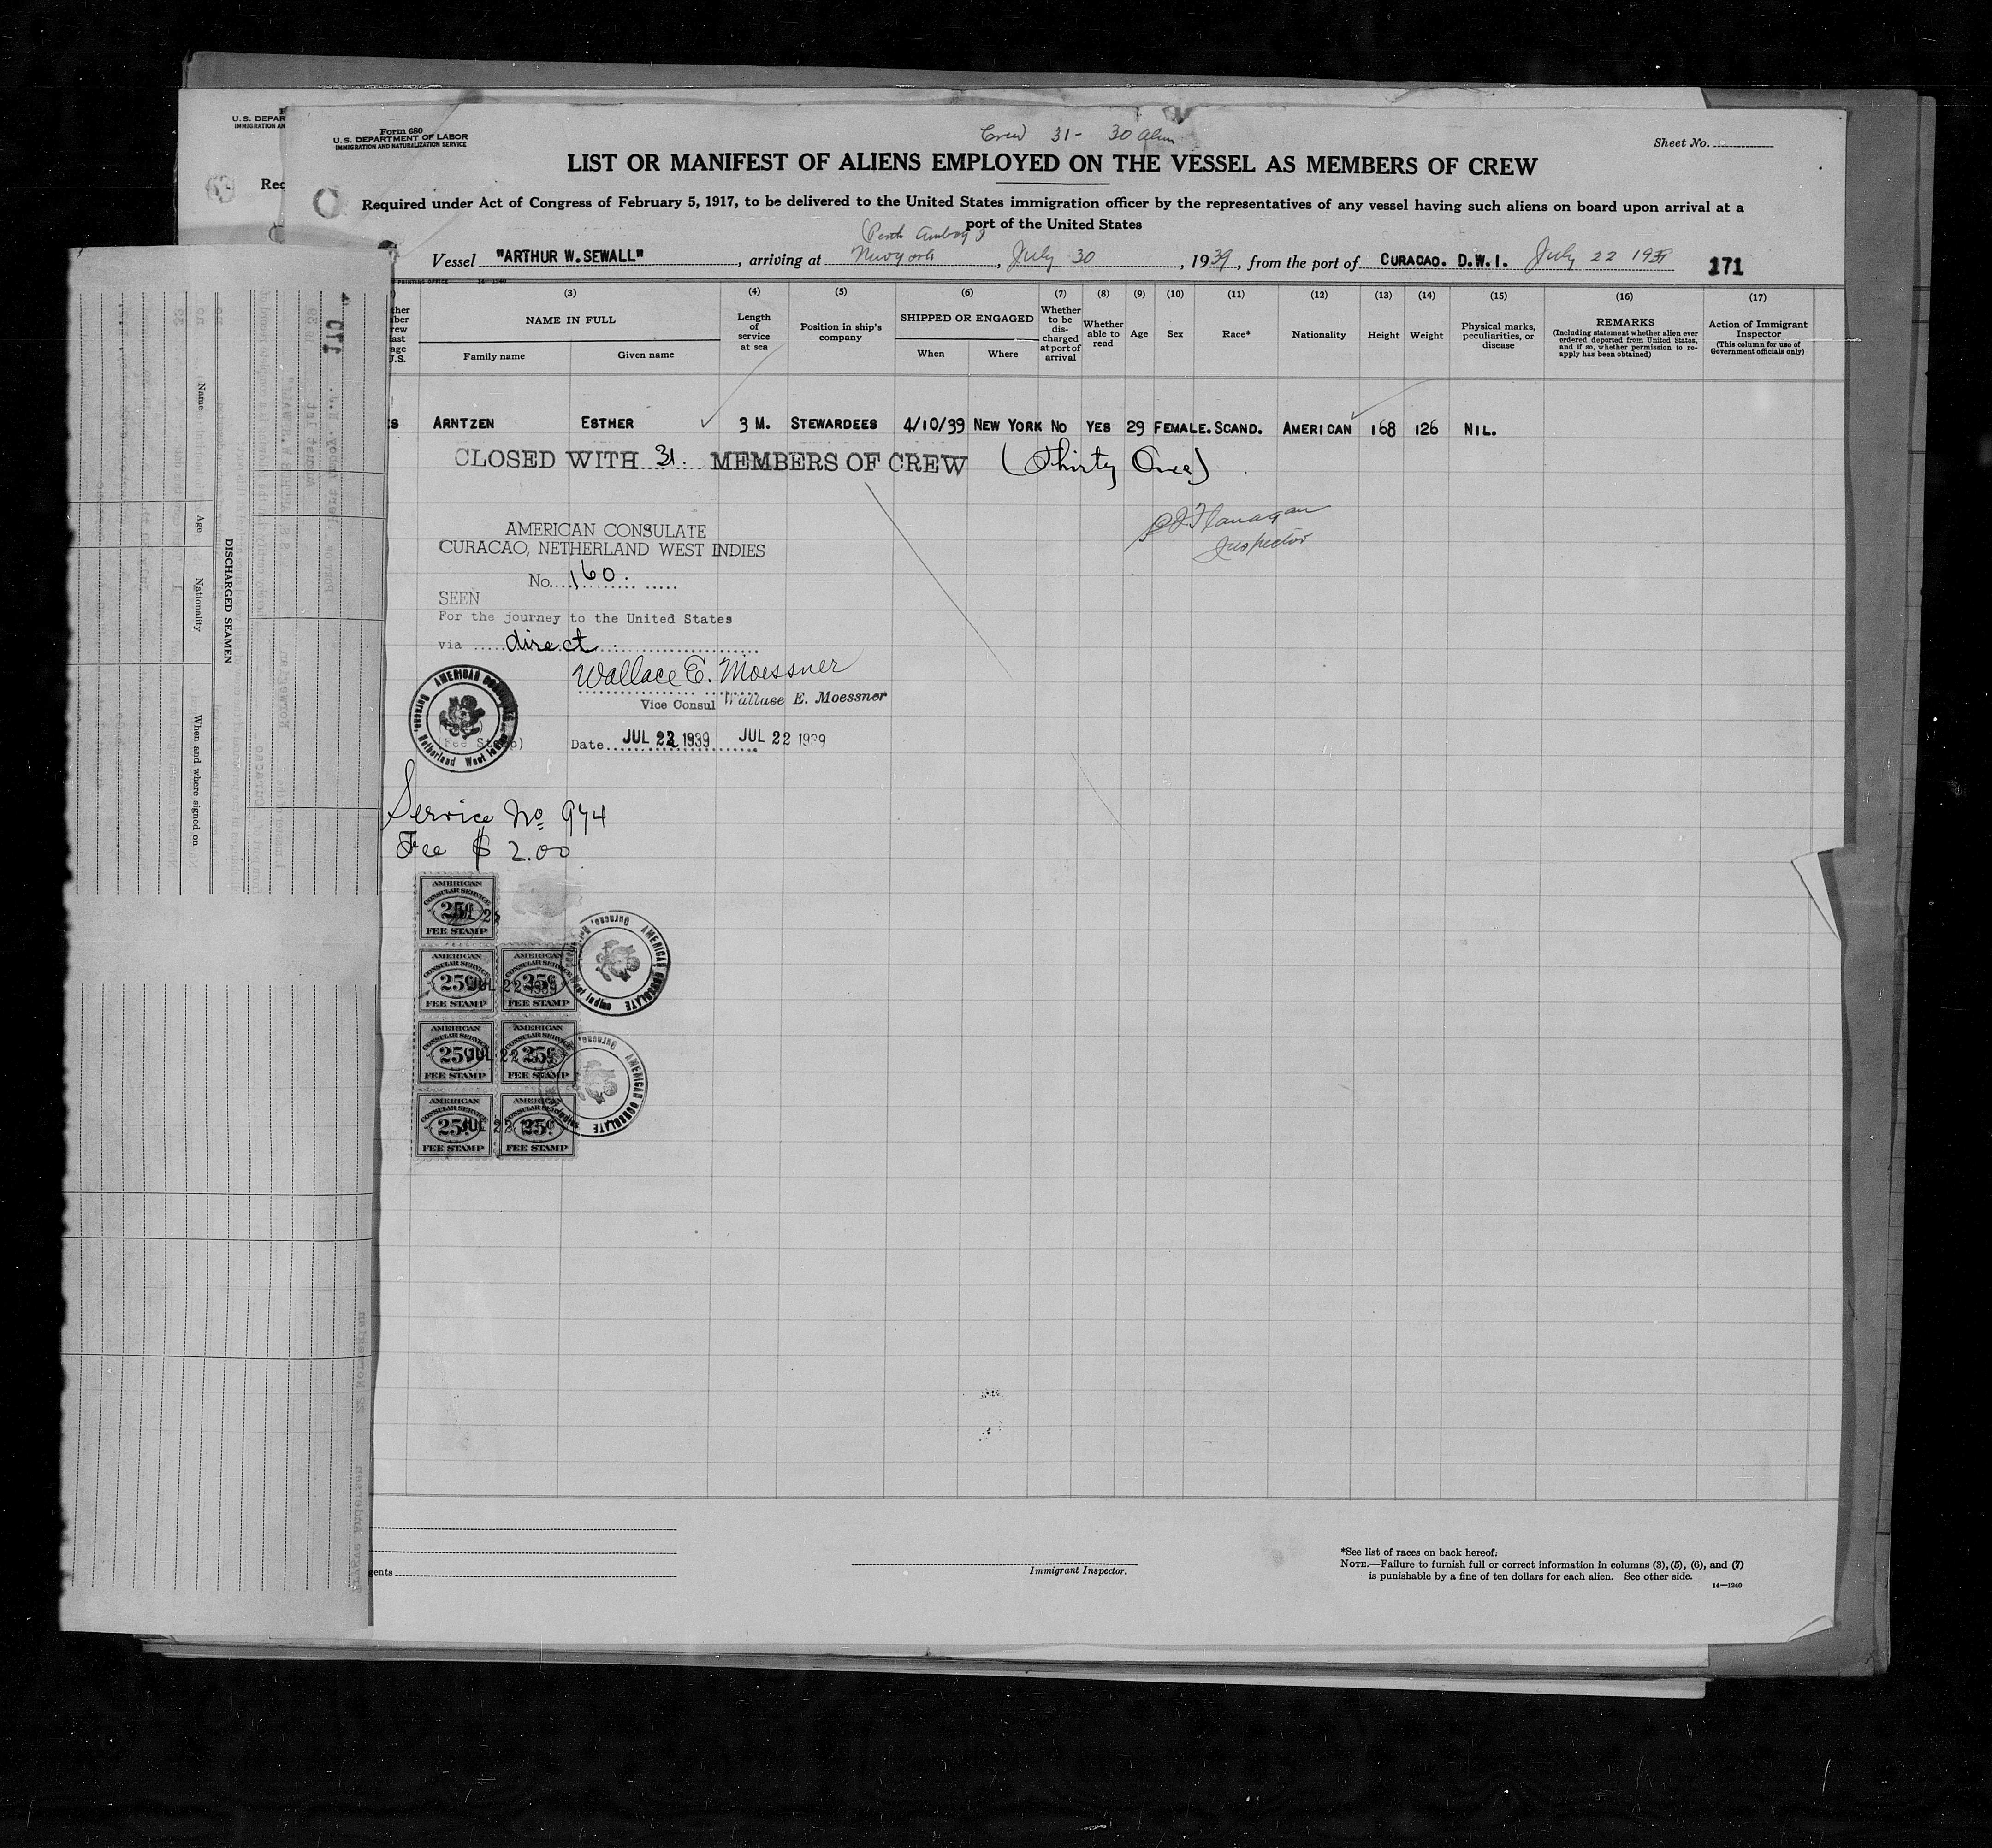 U.S. DEPAR
IMMIGRATION AN
Rec
Form 680
U.S. DEPARTMENT OF LABOR
IMMIGRATION AND NATURALIZATION SERVICE
Crew 31 - 30 alien
Sheet No.
LIST OR MANIFEST OF ALIENS EMPLOYED ON THE VESSEL AS MEMBERS OF CREW
Required under Act of Congress of February 5, 1917, to be delivered to the United States immigration officer by the representatives of any vessel having such aliens on board upon arrival at a
port of the United States
(Perth Amboy)
Vessel "ARTHUR W. SEWALL", arriving at New York, July 30, 1939, from the port of CURACAO. D.W.I. July 22 1939
171
(3) (4) (5) (6) (7) (8) (9) (10) (11) (12) (13) (14) (15) (16) (17)
NAME IN FULL
Family name Given name
Length of service at sea
Position in ship's company
SHIPPED OR ENGAGED
When Where
Whether to be discharged at port of arrival
Whether able to read
Age
Sex
Race*
Nationality
Height
Weight
Physical marks, peculiarities, or disease
REMARKS
(Including statement whether alien ever ordered deported from United States, and if so, whether permission to reapply has been obtained)
Action of Immigrant Inspector
(This column for use of Government officials only)
S ARNTZEN ESTHER 3 M. STEWARDEES 4/10/39 NEW YORK NO YES 29 FEMALE. SCAND. AMERICAN 168 126 NIL.
CLOSED WITH 31. MEMBERS OF CREW (Thirty One)
Flanagan
Inspector
AMERICAN CONSULATE
CURACAO, NETHERLAND WEST INDIES
No. 160.
SEEN
For the journey to the United States
via direct
Wallace E. Moessner
Vice Consul Wallace E. Moessner
AMERICAN CONSULATE
Curacao, Netherland West Indies
(Fee Stamp)
Date JUL 22 1939 JUL 22 1939
Service No 974
Fee $ 2.00
AMERICAN CONSULAR SERVICE 25¢ FEE STAMP
AMERICAN CONSULAR SERVICE 25¢ FEE STAMP
AMERICAN CONSULAR SERVICE 25¢ FEE STAMP
JUL 22 1939
AMERICAN CONSULAR SERVICE 25¢ FEE STAMP
AMERICAN CONSULAR SERVICE 25¢ FEE STAMP
JUL 22
AMERICAN CONSULAR SERVICE 25¢ FEE STAMP
AMERICAN CONSULAR SERVICE 25¢ FEE STAMP
JUL 22
AMERICAN CONSULATE Curacao, West Indies
AMERICAN CONSULATE Curacao,
DISCHARGED SEAMEN
Name
Age
Nationality
When and where signed on
gents
Immigrant Inspector.
*See list of races on back hereof.
NOTE.—Failure to furnish full or correct information in columns (3), (5), (6), and (7)
is punishable by a fine of ten dollars for each alien. See other side.
14—1240